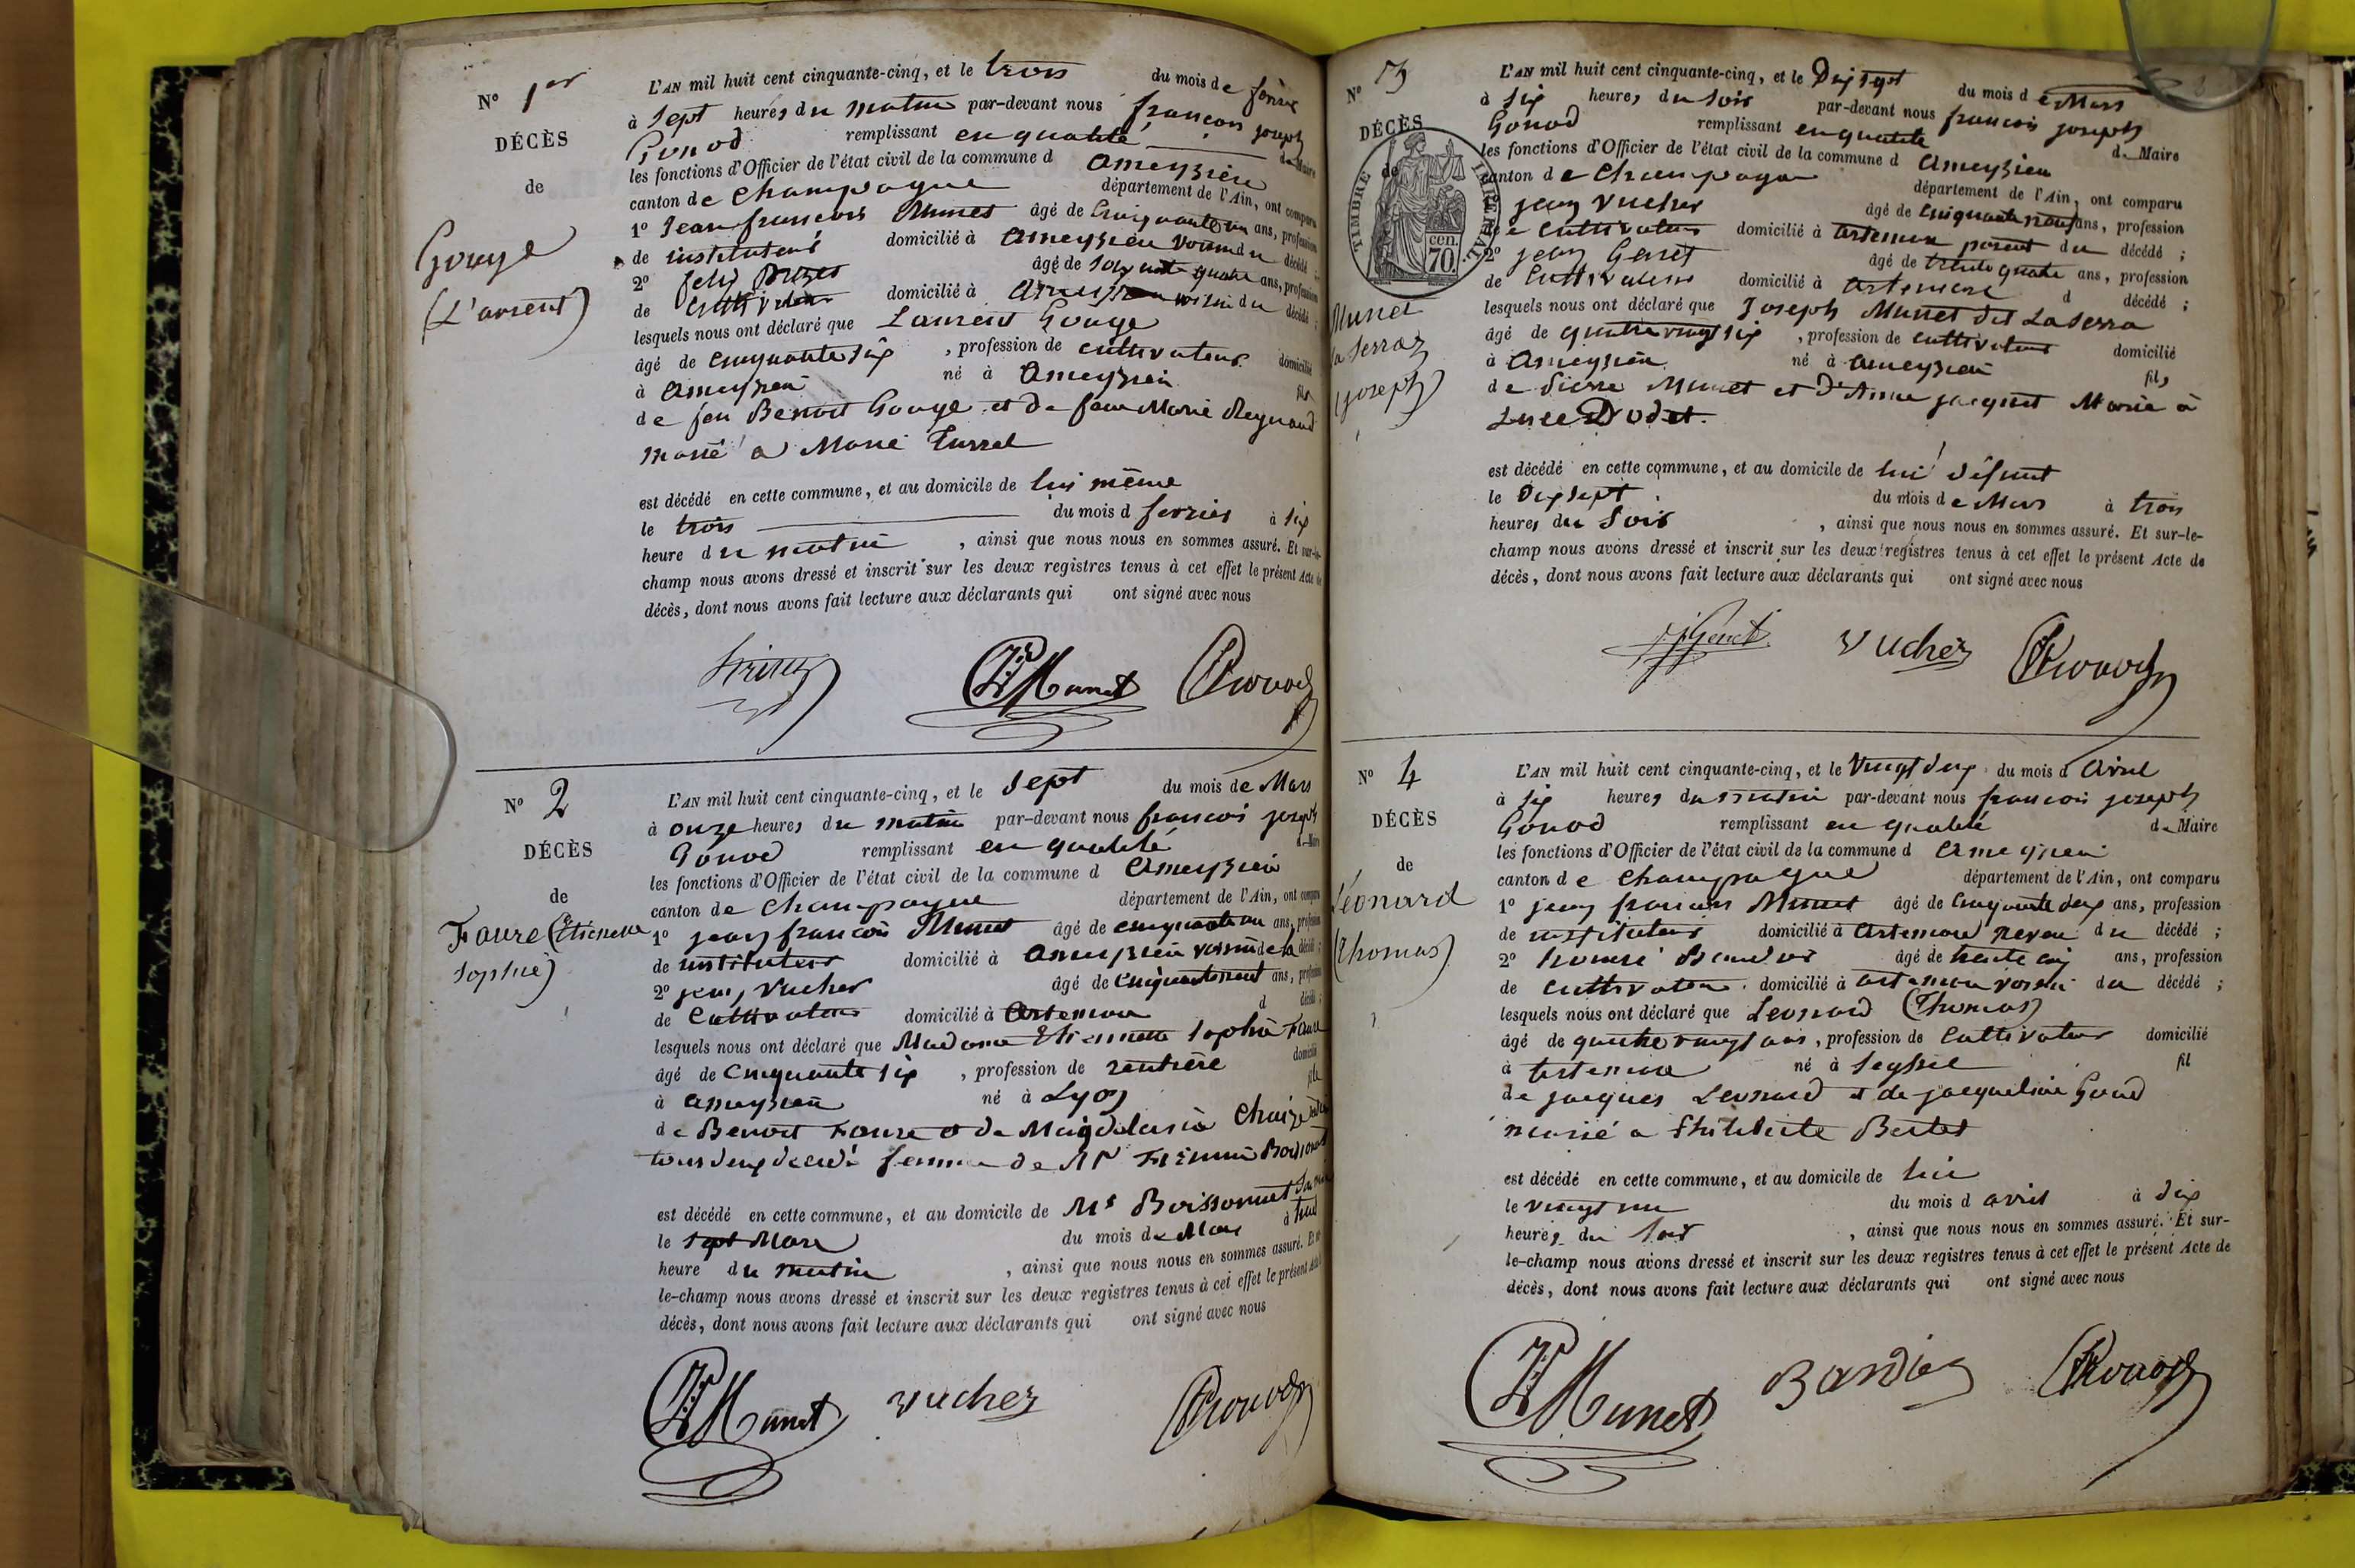 N° 1er
DÉCÈS
de
Gouge
(L'aurent)
L'AN mil huit cent cinquante-cinq, et le trois du mois de février
à sept heures du matin par-devant nous françois joseph
Gonod remplissant en qualité de Maire
les fonctions d'Officier de l'état civil de la commune d Ameyzieu
canton de Champagne département de l'Ain, ont comparu
1° Jean françois Munet âgé de Cinquante un ans, profession
de instituteur domicilié à Ameyzieu voisin du décédé ;
2° felix âgé de soixante quatre ans, profession
de Cultivateur domicilié à Ameyzieu voisin du décédé ;
lesquels nous ont déclaré que Laurent Gouge
âgé de cinquante six , profession de cultivateur domicilié
à Ameyzieu né à Ameyzieu fils
de feu Benoit Gouge et de feue Marie Reynaud
marié a Marie Tussel
est décédé en cette commune, et au domicile de lui même
le trois du mois d fevrier à six
heure du matin , ainsi que nous nous en sommes assuré. Et sur-le-
champ nous avons dressé et inscrit sur les deux registres tenus à cet effet le présent Acte de
décès, dont nous avons fait lecture aux déclarants qui ont signé avec nous
Munet Gonod
N° 2
DÉCÈS
de
Faure (Etiennette
Sophie)
L'AN mil huit cent cinquante-cinq, et le sept du mois de Mars
à onze heures du matin par-devant nous francois joseph
Gonod remplissant en qualité de Maire
les fonctions d'Officier de l'état civil de la commune d Ameyzieu
canton de Champagne département de l'Ain, ont comparu
1° jean françois Munet âgé de cinquante un ans, profession
de instituteur domicilié à Ameyzieu voisin de la décédé ;
2° jean Vucher âgé de Cinquante neuf ans, profession
de Cultivateur domicilié à Artemare d décédé ;
lesquels nous ont déclaré que Madame Etiennette Sophie Faure
âgé de Cinquante six , profession de rentière domicilié
à Ameyzieu né à Lyon fille
de Benoit Faure et de Magdelaine Chaize
tous deux décédé femme de Mr
est décédé en cette commune, et au domicile de Mr Boissonnet
le sept Mars du mois de Mars à huit
heure du matin , ainsi que nous nous en sommes assuré. Et sur-
le-champ nous avons dressé et inscrit sur les deux registres tenus à cet effet le présent Acte de
décès, dont nous avons fait lecture aux déclarants qui ont signé avec nous
Munet Vucher Gonod
N° 3
DÉCÈS
de
TIMBRE IMPERIAL
70 cen.
Munet
la Serraz
(joseph)
L'AN mil huit cent cinquante-cinq, et le Dix sept du mois de Mars
à six heures du soir par-devant nous francois joseph
Gonod remplissant en qualité de Maire
les fonctions d'Officier de l'état civil de la commune d Ameyzieu
canton de Champagne département de l'Ain, ont comparu
jean Vucher âgé de cinquante neuf ans, profession
de Cultivateur domicilié à Artemare parent du décédé ;
2° jean Genet âgé de trente quatre ans, profession
de Cultivateur domicilié à Artemare d décédé ;
lesquels nous ont déclaré que Joseph Munet dit La Serra
âgé de quatre vingt six , profession de cultivateur domicilié
à Ameyzieu né à Ameyzieu fils
de Pierre Munet et d'Anne jacquet Marié à
Luce Dodet.
est décédé en cette commune, et au domicile de lui défunt
le dix sept du mois de Mars à trois
heures du soir , ainsi que nous nous en sommes assuré. Et sur-le-
champ nous avons dressé et inscrit sur les deux registres tenus à cet effet le présent Acte de
décès, dont nous avons fait lecture aux déclarants qui ont signé avec nous
Genet Vucher Gonod
N° 4
DÉCÈS
de
Léonard
(Thomas)
L'AN mil huit cent cinquante-cinq, et le Vingt deux du mois d Avril
à six heures du matin par-devant nous francois joseph
Gonod remplissant en qualité de Maire
les fonctions d'Officier de l'état civil de la commune d Ameyzieu
canton de Champagne département de l'Ain, ont comparu
1° jean francois Munet âgé de Cinquante deux ans, profession
de instituteur domicilié à Artemare neveu du décédé ;
2° âgé de trente cinq ans, profession
de cultivateur domicilié à artemare voisin du décédé ;
lesquels nous ont déclaré que Leonard (Thomas)
âgé de quatre vingt ans , profession de Cultivateur domicilié
à Artemare né à Seyssel fil
de jacques Leonard et de jacqueline
marié a Bertet
est décédé en cette commune, et au domicile de lui
le vingt un du mois d avril à dix
heures du soir , ainsi que nous nous en sommes assuré. Et sur-
le-champ nous avons dressé et inscrit sur les deux registres tenus à cet effet le présent Acte de
décès, dont nous avons fait lecture aux déclarants qui ont signé avec nous
Munet Gonod